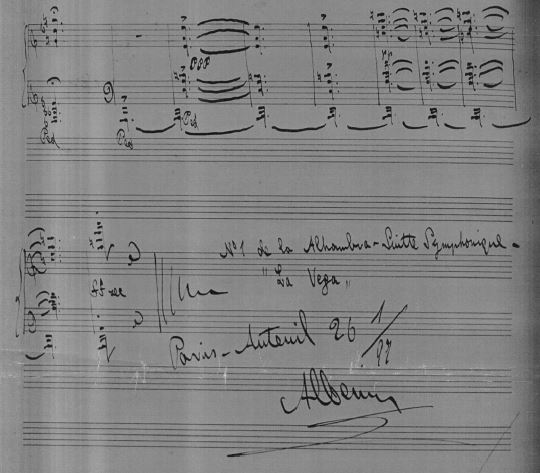 ppp
Ped
Ped
Ped
Nº 1 de la Alhambra - Suitte Symphonique -
"La Vega"
Fin
Paris - Auteuil 26 1/97
Albeniz